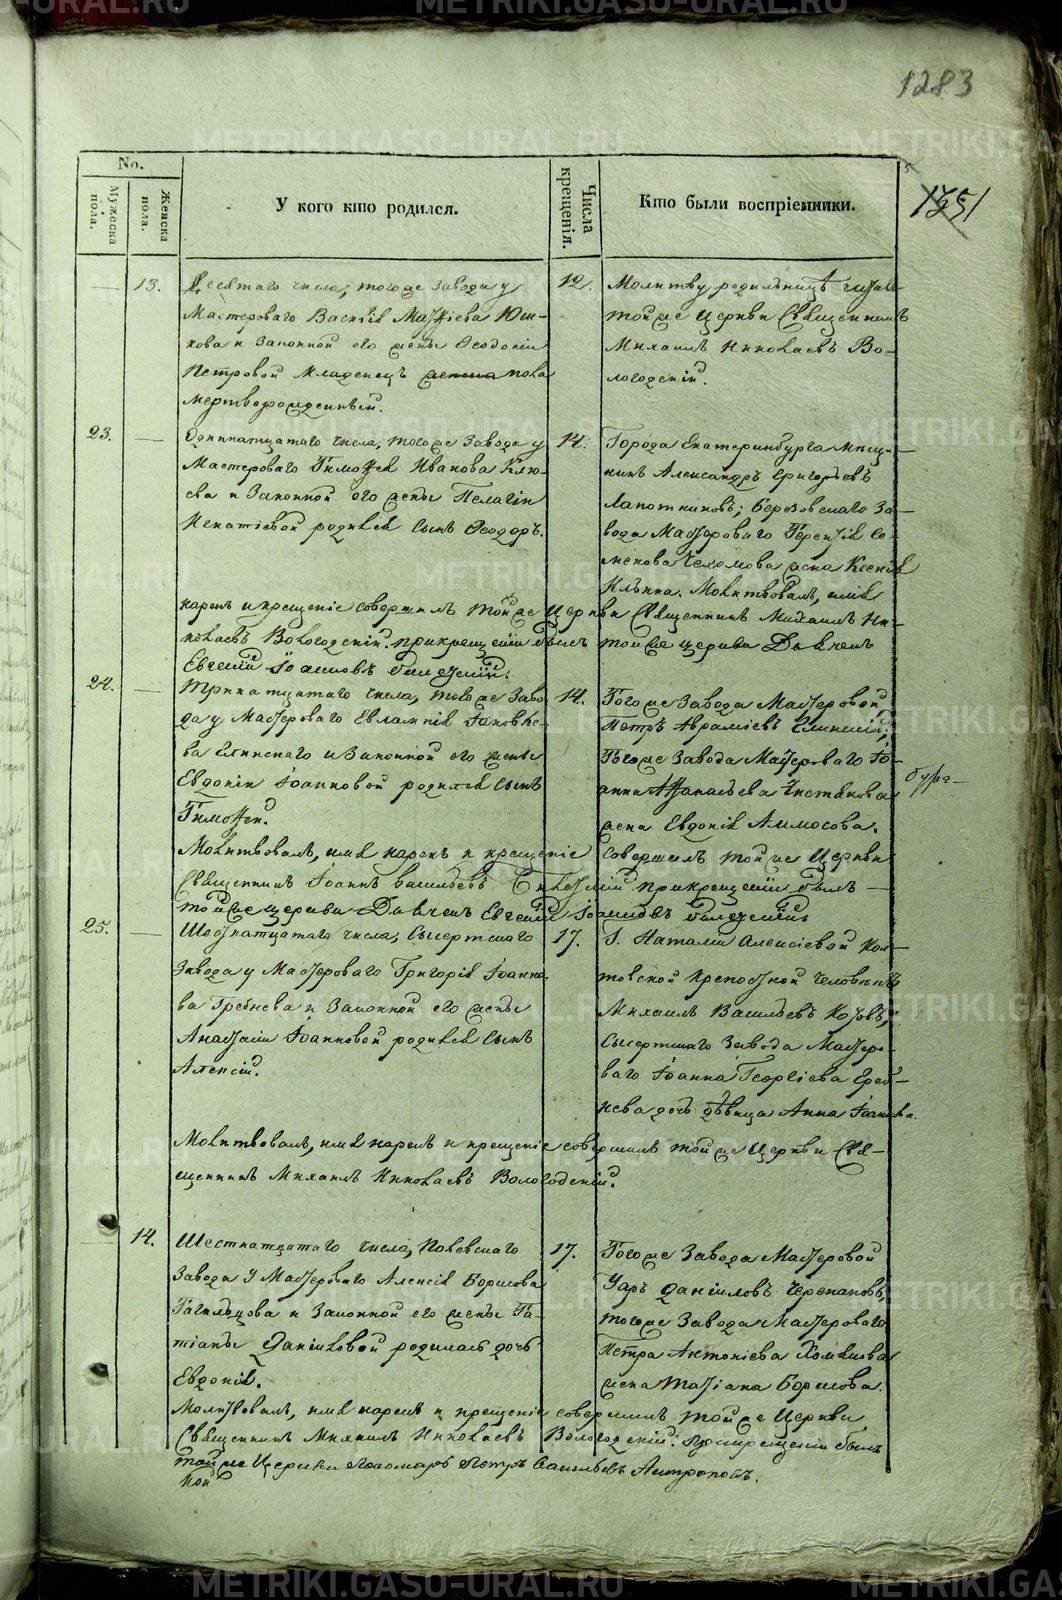 1283
1251
No.
Мужеска пола.
Женска пола.
У кого кто родился.
Числа крещенія.
Кто были воспріемники.
13.
Десятаго числа, тогоже завода у
Мастероваго Василія Матѳіева Юш-
кова и Законной его жены Ѳеодосіи
Петровой младенецъ женска пола
мертворожденный.
12.
Молитву родильницѣ читалъ
тойже Церкви Священникъ
Михаилъ Николаевъ Во-
логодскій.
23.
Одиннатцатаго числа, тогоже завода у
Мастероваго Тимоѳея Иванова Клю-
ева и Законной его жены Пелагіи
Игнатіевой родился сынъ Ѳеодоръ.
14.
Города Екатеринбурга мѣща-
нинъ Александръ Григорьевъ
Лапотниковъ; Березовскаго За-
вода Мастероваго Терентія Се-
менова жена Ксенія
Ильина. Молитвовалъ, имя
нарекъ и крещеніе совершилъ тойже Церкви Священникъ Михаилъ Ни-
колаевъ Вологодскій. при крещеніи былъ тойже церкви Дьячекъ
Евгеній Іоанновъ
24.
Тринатцатаго числа, тогоже Заво-
да у Мастероваго Евлампія Іаковле-
ва и Законной его жены
Евдокіи Іоанновой родился сынъ
Тимоѳей.
14.
Тогоже Завода Мастеровой
Петръ Авраміевъ
Тогоже Завода Мастероваго Іо-
анна Аѳанасьева Чистякова
жена Евдокія Амосова.
Молитвовалъ, имя нарекъ и крещеніе совершилъ тойже Церкви
Священникъ Іоаннъ Васильевъ при крещеніи былъ
тойже церкви Дьячекъ Евгеній Іоанновъ
25.
Шестнатцатаго числа, Сысертскаго
завода у Мастероваго Григорія Іоанно-
ва Гребнева и Законной его жены
Анастасіи Іоанновой родился сынъ
Алексій.
17.
Г. Наталіи Алексіевой Кол-
товской крепостной человѣкъ
Михаилъ Васильевъ Котовъ;
Сысертскаго Завода Мастеро-
ваго Іоанна Георгіева Греб-
нева дочь дѣвица Анна Іоаннова.
Молитвовалъ, имя нарекъ и крещеніе совершилъ тойже Церкви Свя-
щенникъ Михаилъ Николаевъ Вологодскій.
14.
Шестнатцатаго числа, Полевскаго
Завода у Мастероваго Алексія Борисова
Тагильцова и Законной его жены Та-
тіаны Даніиловой родилась дочь
Евдокія.
17.
Тогоже Завода Мастеровой
Уаръ Даніиловъ Черепановъ,
тогоже Завода Мастероваго
Петра Антоніева Хомякова
жена Татіана Борисова.
Молитвовалъ, имя нарекъ и крещеніе совершилъ тойже Церкви
Священникъ Михаилъ Николаевъ Вологодскій: при крещеніи былъ
тойже Церкви Пономарь Петръ Васильевъ Антроповъ.
METRIKI.GASO-URAL.RU